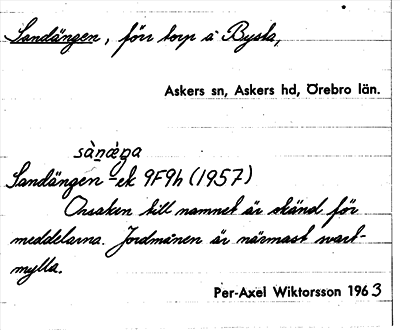 Sandängen, förr torp å Bysta,
Askers sn, Askers hd, Örebro län.
sàn̠æ̀ŋa
Sandängen - ek 9F9h (1957)
Orsaken till namnet är okänd för
meddelarna. Jordmånen är närmast svart-
mylla.
Per-Axel Wiktorsson 1963